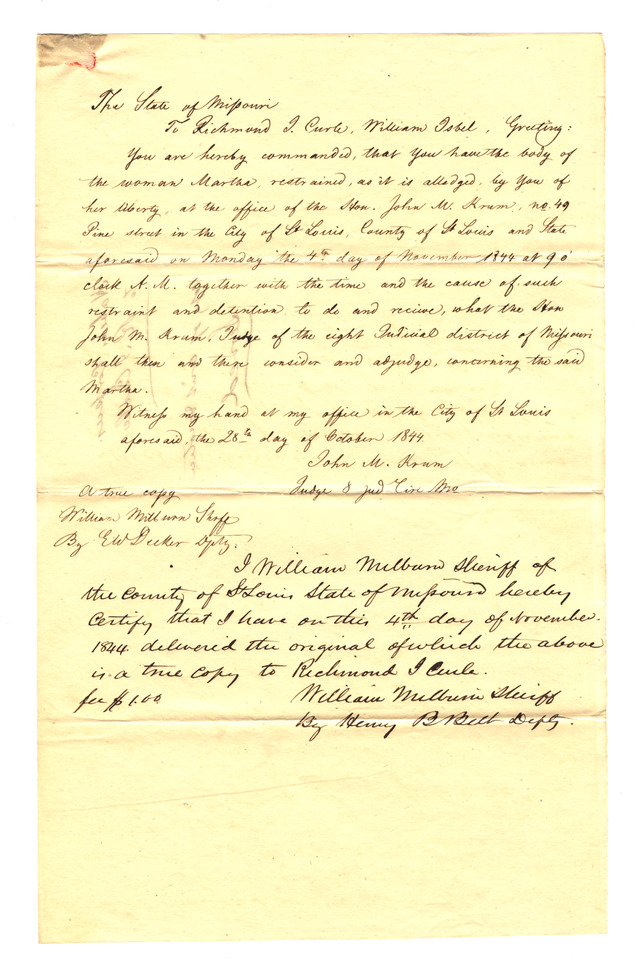 The State of Missouri
To Richmond J. Curle, William Isbel, Greeting:
You are hereby commanded, that You have the body of
the woman Martha, restrained, as it is alledged, by You of
her liberty, at the office of the Hon. John M. Krum, no. 49
Pine street in the City of St Louis, County of St Louis and State
aforesaid on Monday the 4th day of November 1844 at 9 o'
clock A. M. together with the time and the cause of such
restraint and detention to do and recieve, what the Hon
John M. Krum, Judge of the eight Judicial district of Missouri
shall then and there consider and adjudge, concerning the said
Martha.
Witness my hand at my office in the City of St Louis
aforesaid, the 28th day of October 1844.
John M. Krum
Judge 8 Jud Circ Mo
A true copy
William Milburn Shff
By E W Decker Dpty.
I William Milburn Sheriff of
the County of St Louis State of Missouri hereby
Certify that I have on this 4th day of November
1844. delivered the original of which the above
is a true copy to Richmond J Curle.
fee $1.00 William Milburn Sheriff
By Henry B Belt Depty.